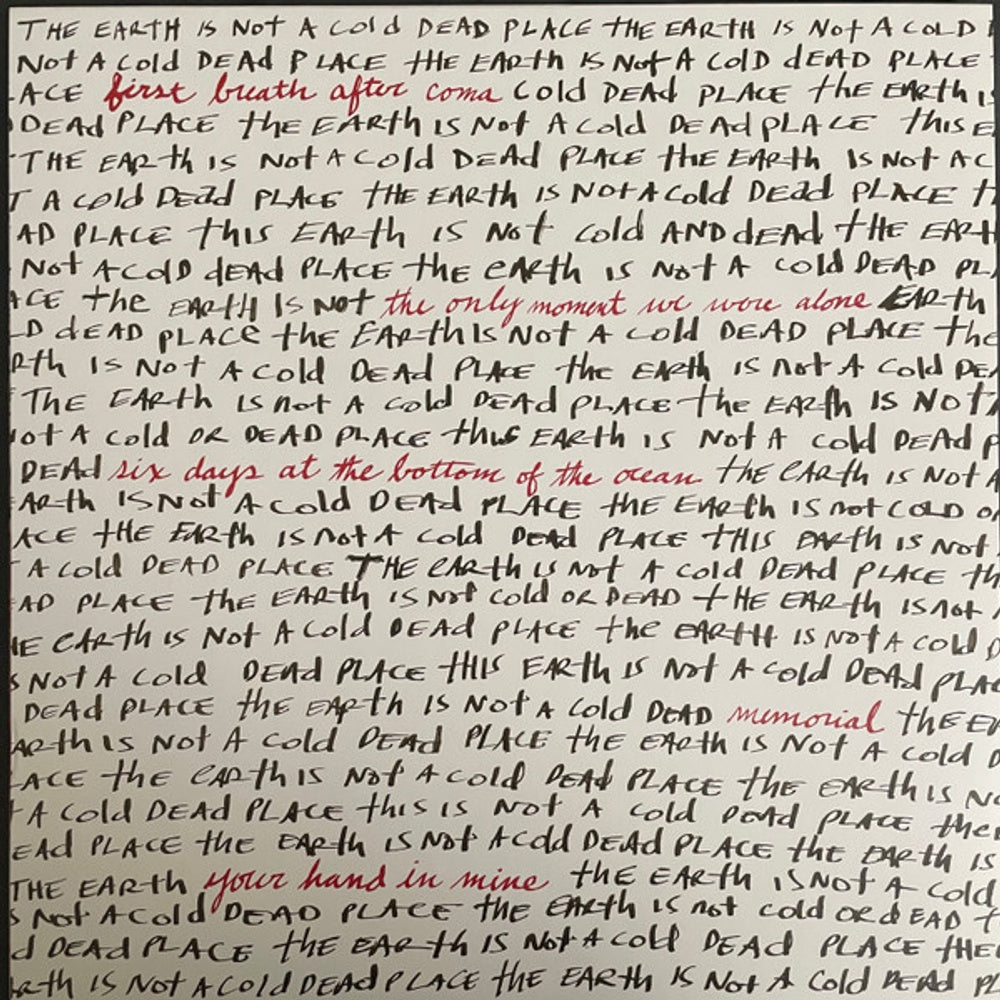 THE EARTH IS NOT A COLD DEAD PLACE THE EARTH IS NOT A COLD
NOT A COLD DEAD PLACE THE EARTH IS NOT A COLD DEAD PLACE
ACE first breath after coma COLD DEAD PLACE THE EARTH
DEAD PLACE THE EARTH IS NOT A COLD DEAD PLACE THIS E
THE EARTH IS NOT A COLD DEAD PLACE THE EARTH IS NOT A C
T A COLD DEAD PLACE THE EARTH IS NOT A COLD DEAD PLACE T
AD PLACE THIS EARTH IS NOT COLD AND DEAD THE EARTH
NOT A COLD DEAD PLACE THE EARTH IS NOT A COLD DEAD PL
ACE THE EARTH IS NOT the only moment we were alone EARTH
D DEAD PLACE THE EARTH IS NOT A COLD DEAD PLACE THE
RTH IS NOT A COLD DEAD PLACE THE EARTH IS NOT A COLD DEA
THE EARTH IS NOT A COLD DEAD PLACE THE EARTH IS NOT
NOT A COLD OR DEAD PLACE THIS EARTH IS NOT A COLD DEAD P
DEAD six days at the bottom of the ocean THE EARTH IS NOT A
EARTH IS NOT A COLD DEAD PLACE THE EARTH IS NOT COLD O
ACE THE EARTH IS NOT A COLD DEAD PLACE THIS EARTH IS NOT
A COLD DEAD PLACE THE EARTH IS NOT A COLD DEAD PLACE TH
AD PLACE THE EARTH IS NOT COLD OR DEAD THE EARTH IS NOT
HE EARTH IS NOT A COLD DEAD PLACE THE EARTH IS NOT A COLD D
S NOT A COLD DEAD PLACE THIS EARTH IS NOT A COLD DEAD PLAC
DEAD PLACE THE EARTH IS NOT A COLD DEAD memorial THE EA
ARTH IS NOT A COLD DEAD PLACE THE EARTH IS NOT A COLD D
ACE THE EARTH IS NOT A COLD DEAD PLACE THE EARTH IS NO
T A COLD DEAD PLACE THIS IS NOT A COLD DEAD PLACE THE
EAD PLACE THE EARTH IS NOT A COLD DEAD PLACE THE EARTH IS
THE EARTH your hand in mine THE EARTH IS NOT A COLD
S NOT A COLD DEAD PLACE THE EARTH IS NOT COLD OR DEAD T
D DEAD PLACE THE EARTH IS NOT A COLD DEAD PLACE THE
ARTH IS NOT A COLD DEAD PLACE THE EARTH IS NOT A COLD DEAD PL